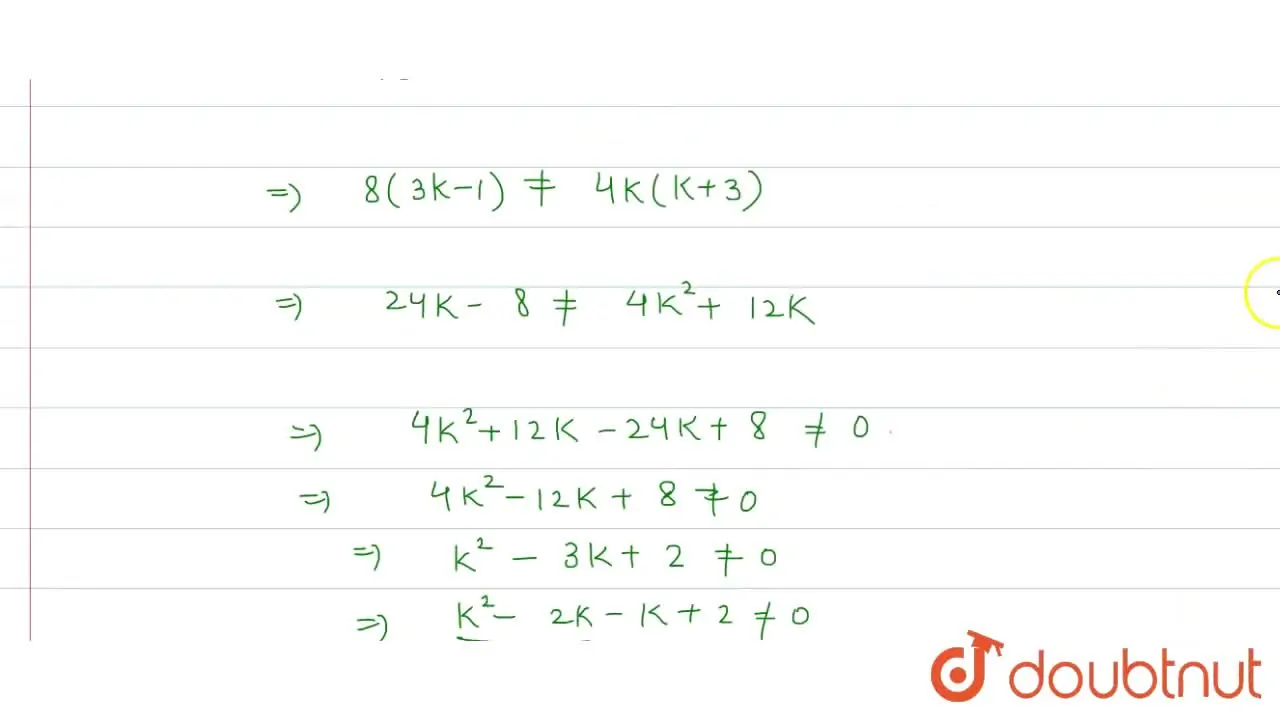 =) 8(3K-1) ≠ 4K(K+3)
=) 24K - 8 ≠ 4K² + 12K
=) 4K²+12K -24K + 8 ≠ 0
=) 4K² -12K + 8 ≠ 0
=) K² - 3K + 2 ≠ 0
=) K² - 2K - K + 2 ≠ 0
doubtnut